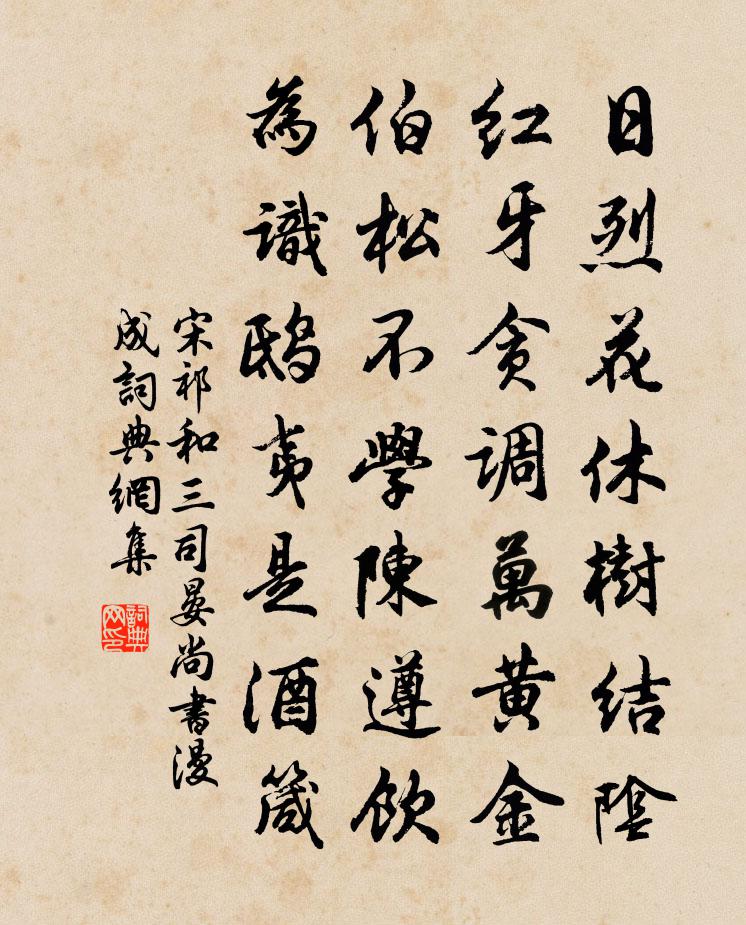 日烈花休樹結陰
紅牙貪調萬黃金
伯松不學陳遵飲
為識鴟夷是酒箴
宋祁和三司晏尚書漫
成詞典網集
詞典網印